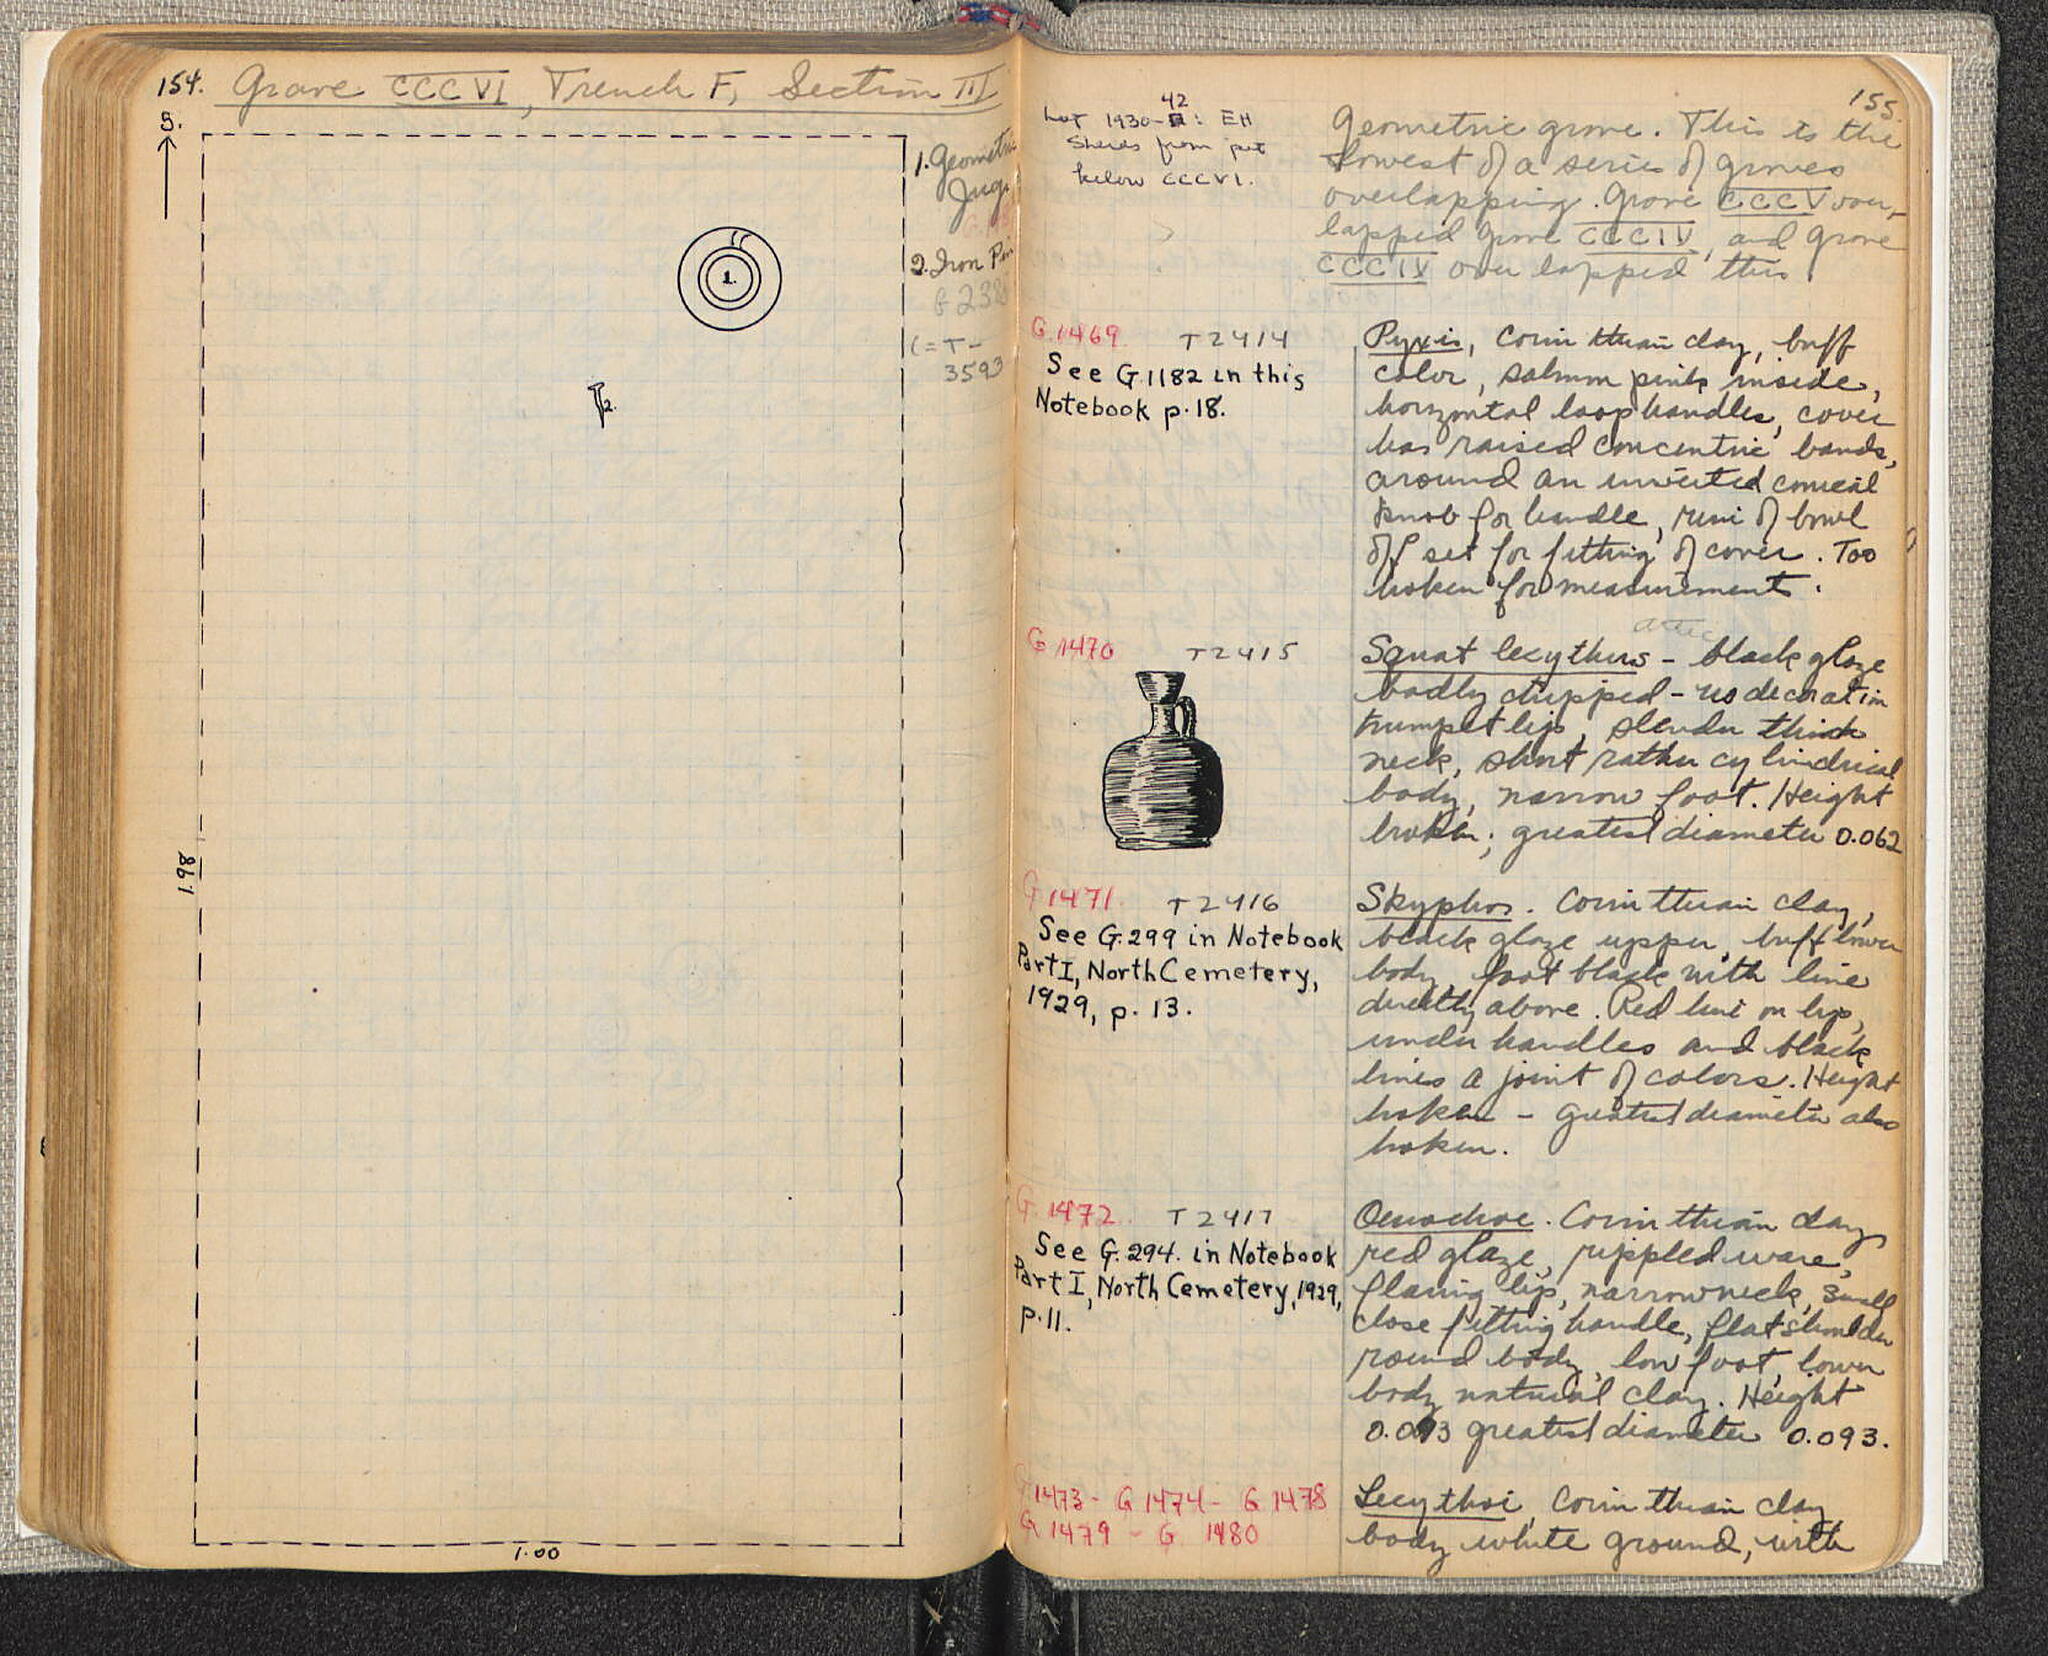 154. Grave CCCVI, Trench F, Section III
S.
1. Geometric
Jug.
2. Iron Pin
G 238
(= T-
3593
1.
2.
1.98
1.00
155.
42
Lot 1930- : EH
Sherds from pit
below CCCVI.
Geometric grave. This is the
lowest of a series of graves
overlapping. Grave CCCV over-
lapped grave CCCIV, and grave
CCCIV over lapped this.
G 1469 T2414
See G.1182 in this
Notebook p. 18.
Pyxis, Corinthian clay, buff
color, salmon pink inside,
horizontal loop handles, cover
has raised concentric bands,
around an inverted conical
knob for handle, rim of bowl
off set for fitting of cover. Too
broken for measurement.
G 1470 T2415
Attic
Squat lecythus - black glaze
badly chipped - no decoration
trumpet lip, slender thick
neck, short rather cylindrical
body, narrow foot. Height
broken; greatest diameter 0.062
G 1471 T2416
See G.299 in Notebook
Part I, North Cemetery,
1929, p. 13.
Skyphos. Corinthian clay,
black glaze upper, buff lower
body, foot black with line
directly above. Red line on lip,
under handles and black
lines a joint of colors. Height
broken - greatest diameter also
broken.
G. 1472. T2417
See G.294. in Notebook
Part I, North Cemetery, 1929,
p. 11.
Oenochoe. Corinthian clay
red glaze, rippled ware,
flaring lip, narrow neck, small
close fitting handle, flat shoulder
round body, low foot, lower
body natural clay. Height
0.093 greatest diameter 0.093.
G 1473 - G 1474 - G 1478
G 1479 - G 1480
Lecythoi, Corinthian clay
body white ground, with